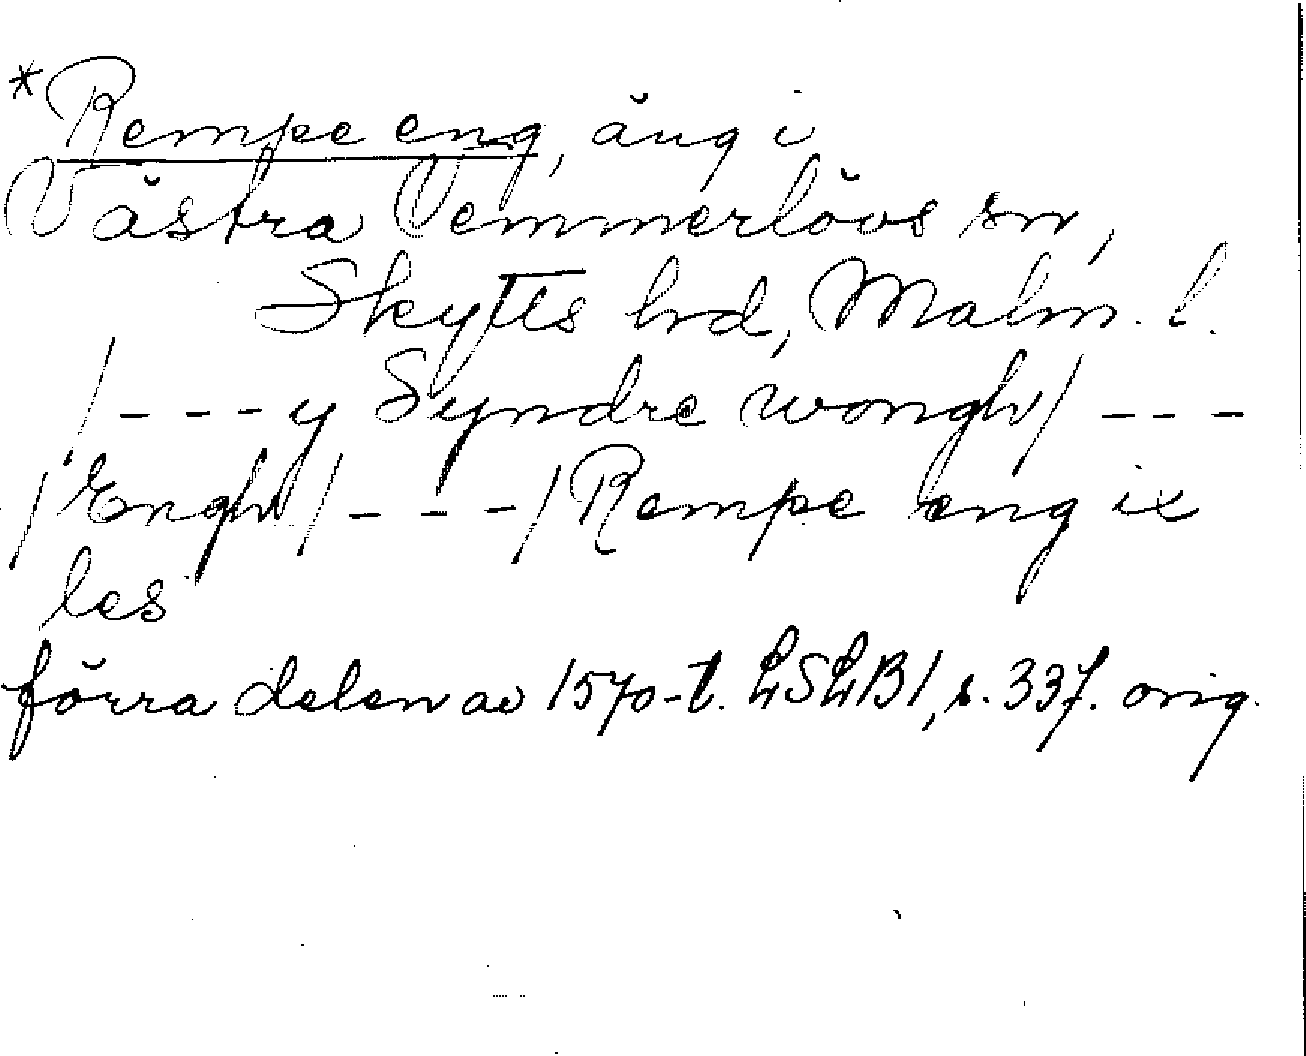 *Rempe eng, äng i
Västra Vemmerlövs sn,
Skytts hd, Malm. l.
/---y Syndre wongh/ ---
/Engh/ ---/Rempe eng ix
les
förra delen av 1570-t. LSLB1, s. 337. orig.